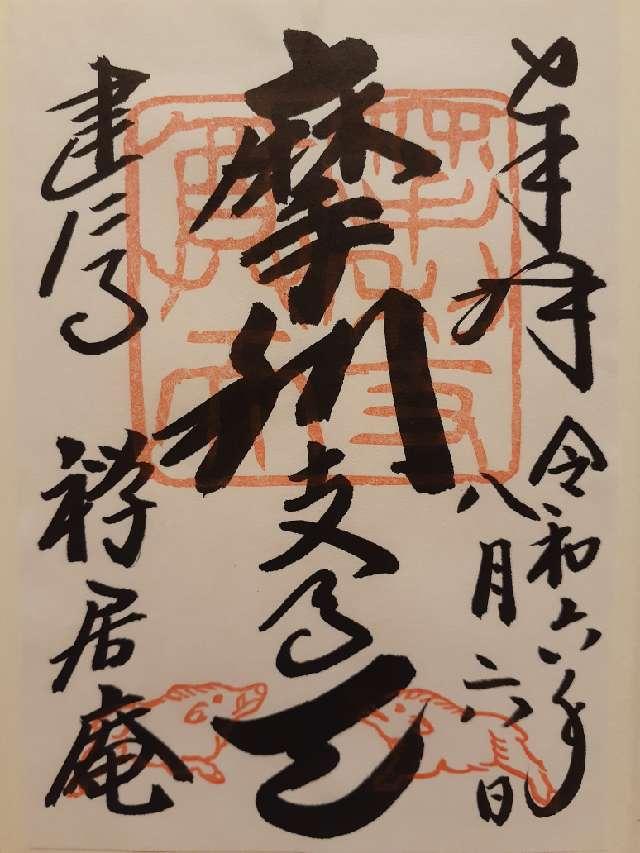 奉拝
令和六年
八月六日
摩利支尊天
建仁寺
禅居庵